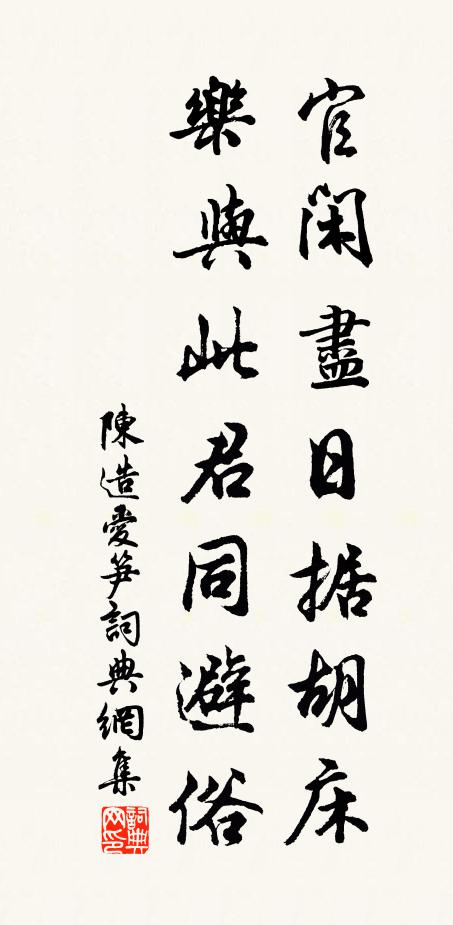 官閑盡日据胡床
樂與此君同避俗
陳造愛笋詞典網集
詞典网印